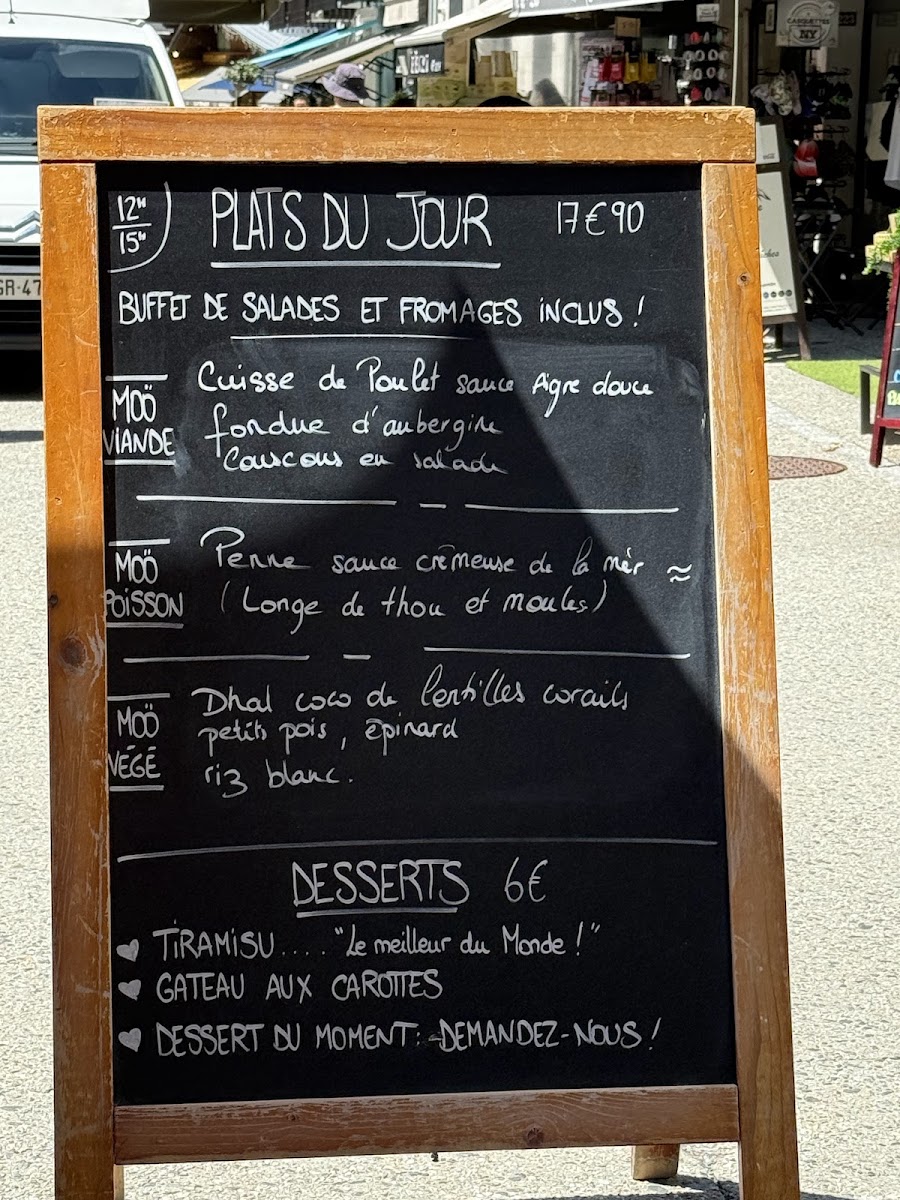 CASQUETTES
NY
GR-47
12H
15H
PLATS DU JOUR 17€90
BUFFET DE SALADES ET FROMAGES INCLUS !
MOÖ
VIANDE
Cuisse de Poulet sauce Aigre douce
fondue d'aubergine
Couscous en salade
MOÖ
POISSON
Penne sauce crémeuse de la mer ≈
(Longe de thon et moules)
MOÖ
VÉGÉ
Dhal coco de lentilles corails
petits pois, épinard
riz blanc.
DESSERTS 6€
♥ TIRAMISU..... "Le meilleur du Monde !"
♥ GATEAU AUX CAROTTES
♥ DESSERT DU MOMENT: DEMANDEZ-NOUS !